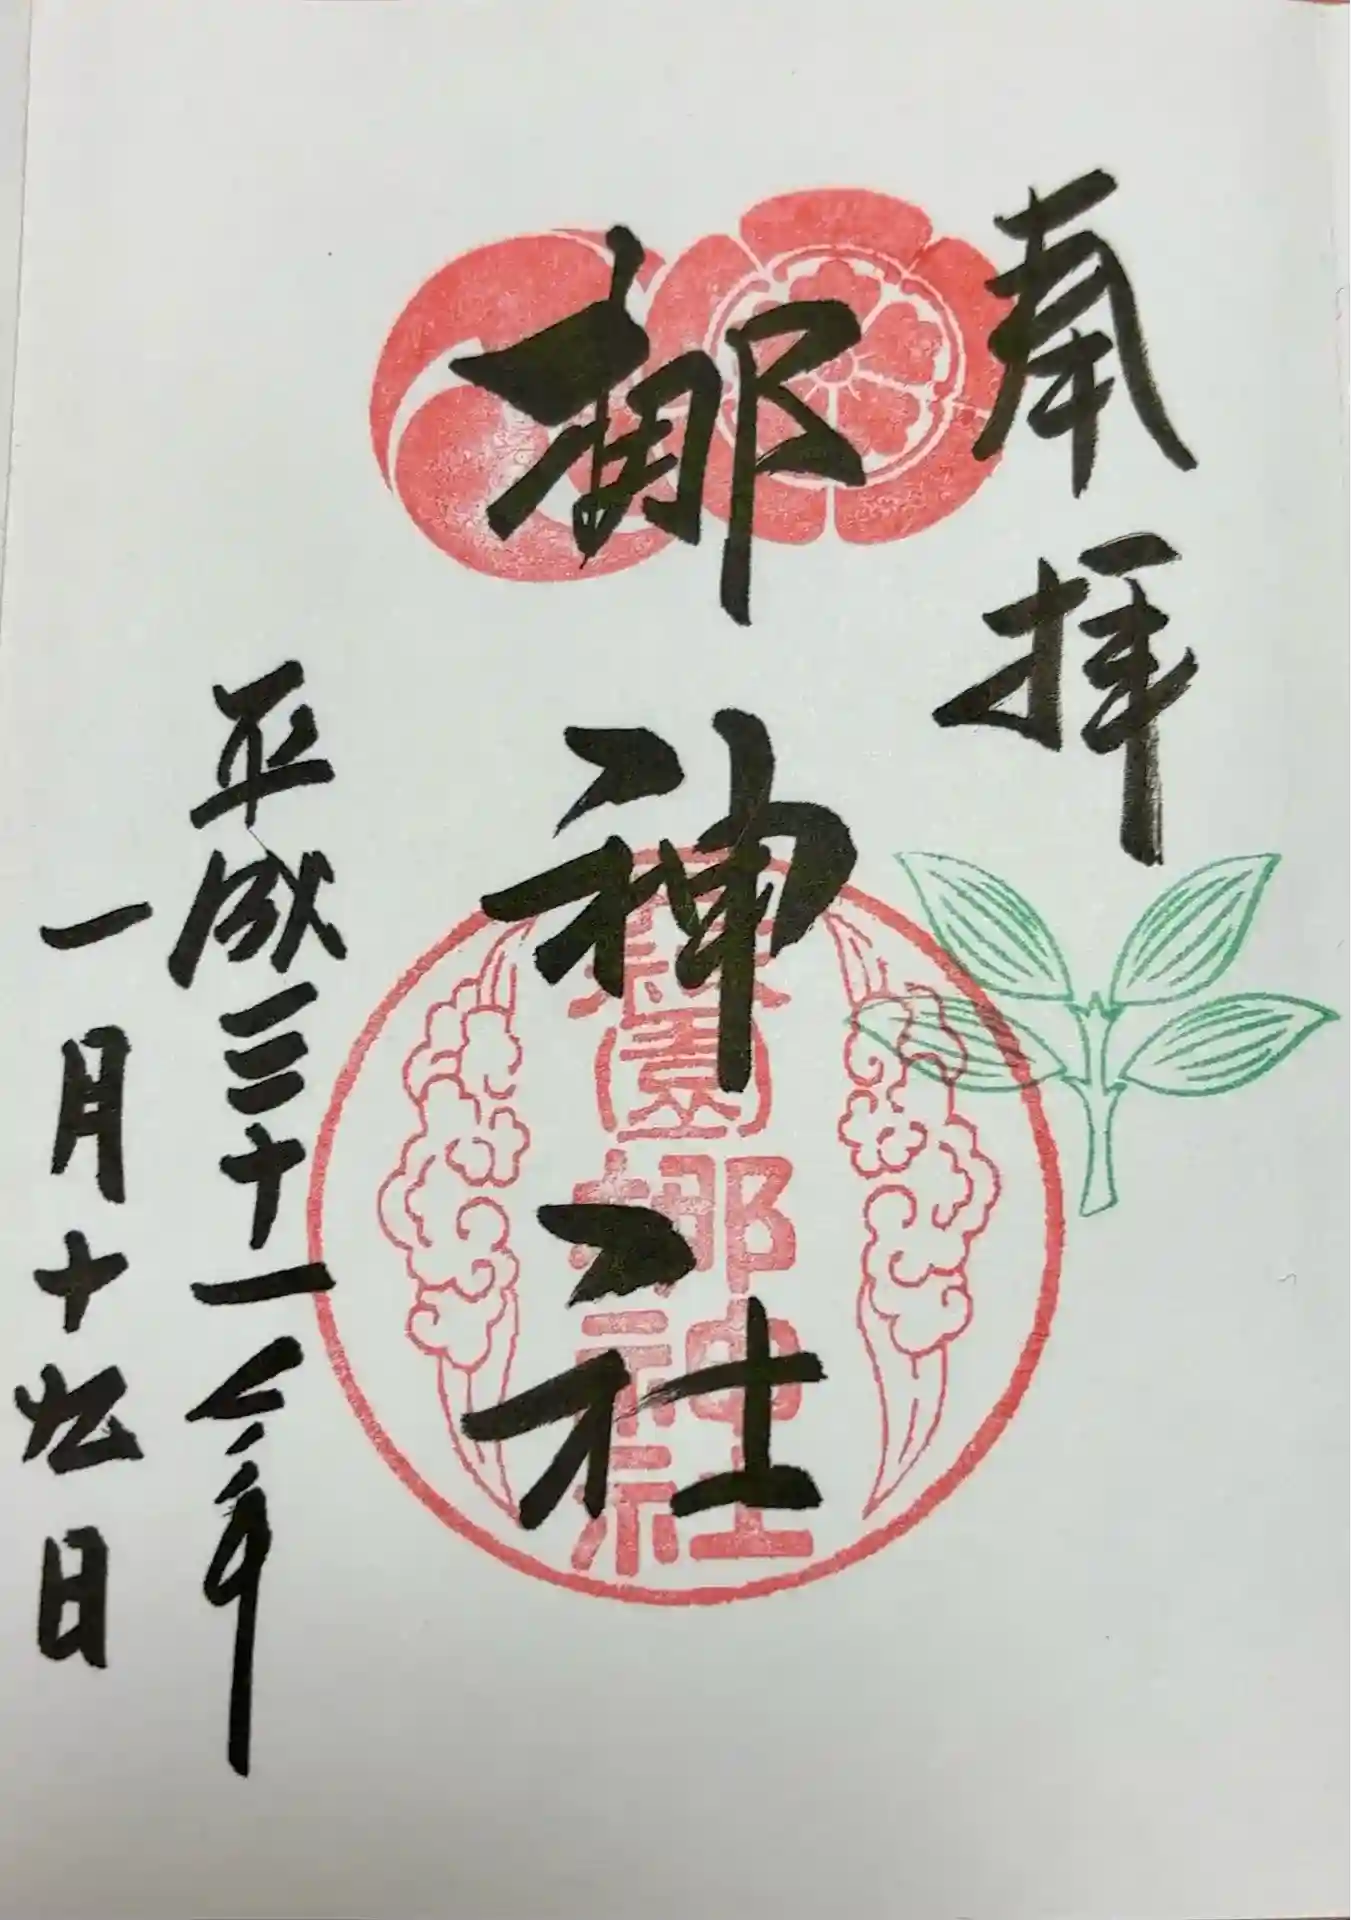 奉拝
梛神社
元祇園梛神社
平成三十一年
一月十九日